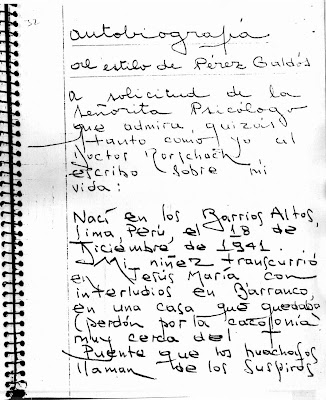 32
autobiografía
al estilo de Pérez Galdós
a solicitud de la
Señorita Psicólogo
que admira, quizás
tanto como yo al
Doctor Rorschach
escribo sobre mi
vida:
Nací en los Barrios Altos,
Lima, Perú, el 18 de
Diciembre de 1941.
Mi niñez transcurrió
en Jesús María con
interludios en Barranco,
en una casa que quedaba
(perdón por la cacofonía
muy cerca del
Puente que los huachafos
llaman de los Suspiros